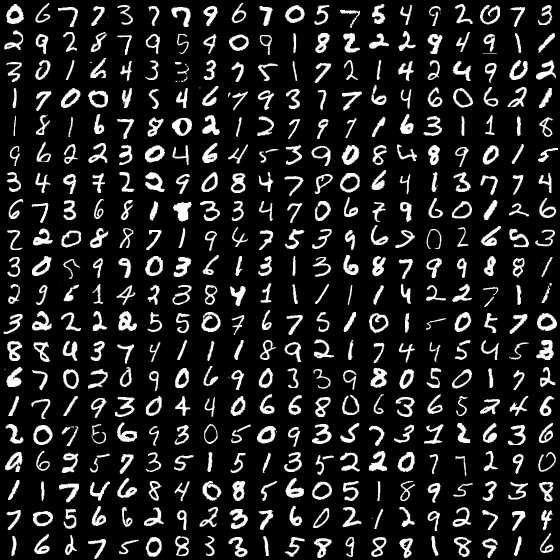 0 6 7 7 3 7 7 9 6 7 0 5 7 5 4 9 2 0 7 3
2 9 2 8 7 9 5 4 0 9 1 8 2 2 2 9 4 9 1 1
3 0 1 6 4 3 3 3 7 5 1 7 2 1 4 2 4 9 0 2
1 7 0 0 4 5 4 6 7 9 3 7 7 6 4 6 0 6 2 1
1 8 1 6 7 8 0 2 1 2 7 9 7 1 6 3 1 1 1 8
9 6 2 2 3 0 4 6 4 5 3 9 0 8 4 8 9 0 1 5
3 4 9 7 2 2 9 0 8 4 7 8 0 6 4 1 3 7 7 4
6 7 3 6 8 1 3 3 4 7 0 6 7 9 6 0 1 2 6
2 2 0 8 8 7 1 9 4 7 5 3 9 6 9 0 2 6 5 3
3 0 5 9 9 0 3 6 1 3 1 3 6 8 7 9 9 8 8 1
2 9 6 1 4 2 8 8 4 1 1 1 1 1 4 2 2 7 1 1
3 2 2 2 2 5 5 0 7 6 7 5 1 0 1 5 0 5 7 0
8 8 4 3 7 4 1 1 1 8 9 2 1 7 4 4 5 4 5 2
6 7 0 2 0 9 0 6 9 0 3 3 9 8 0 5 0 1 7 2
1 7 1 9 3 0 4 4 0 6 6 8 0 6 3 6 5 2 4 6
2 0 7 5 6 9 3 0 5 0 9 3 5 7 3 1 2 6 3 6
9 6 2 5 7 3 5 1 5 1 3 5 2 2 0 7 7 2 9 0
1 1 7 4 6 8 4 0 8 5 6 0 5 1 8 9 5 3 3 8
7 0 5 6 6 2 9 2 3 7 6 0 2 1 2 9 2 7 7 4
1 6 2 7 5 0 8 3 3 1 5 8 9 8 8 1 8 8 1 6